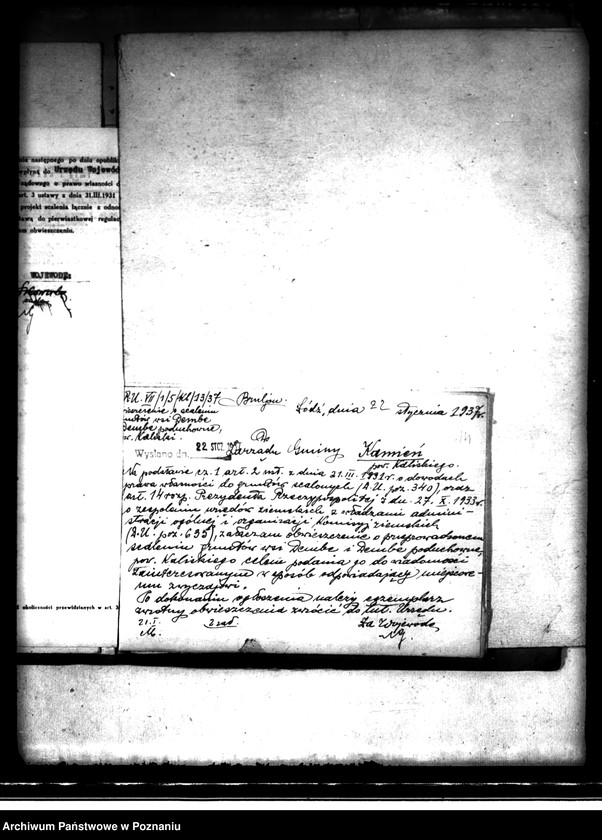 nia następnego po dniu opublik
wpłyną do Urzędu Wojewód
sądowego o prawo własności
art. 3 ustawy z dnia 31.III.1931
projekt scalenia łącznie z odno
do pierwiastkowej regulac
obwieszczeniu.
WOJEWODĘ:
okoliczności przewidzianych w art. 3
R.U. VII/1/5/Kl/13/37.
Łódź, dnia 22 stycznia 1937 r.
o scaleniu
gruntów wsi Dembe
i Dembe poduchowne,
pow. Kaliski.
Wysłano dn. 22 STCZ. 1937
Do
Zarządu Gminy Kamień
pow. Kaliskiego.
Na podstawie cz. 1 art. 2 ust. z dnia 21.III.1931 r. o dowodach
prawa własności do gruntów scalonych (Dz.U. poz. 340) oraz
art. 14 rozp. Prezydenta Rzeczypospolitej z dn. 27.X.1933 r.
o zespoleniu urzędów ziemskich z władzami admini-
stracji ogólnej i organizacji komisyj ziemskich
(Dz.U. poz. 635), załączam obwieszczenie o przeprowadzonem
scaleniu gruntów wsi Dembe i Dembe poduchowne,
pow. Kaliskiego celem podania go do wiadomości
zainteresowanym w sposób odpowiadający miejsco-
wym zwyczajom.
Po dokonaniu ogłoszenia należy egzemplarz
zwrotny obwieszczenia zwrócić do tut. Urzędu.
21.I.
2 zał
Za Wojewodę
Archiwum Państwowe w Poznaniu